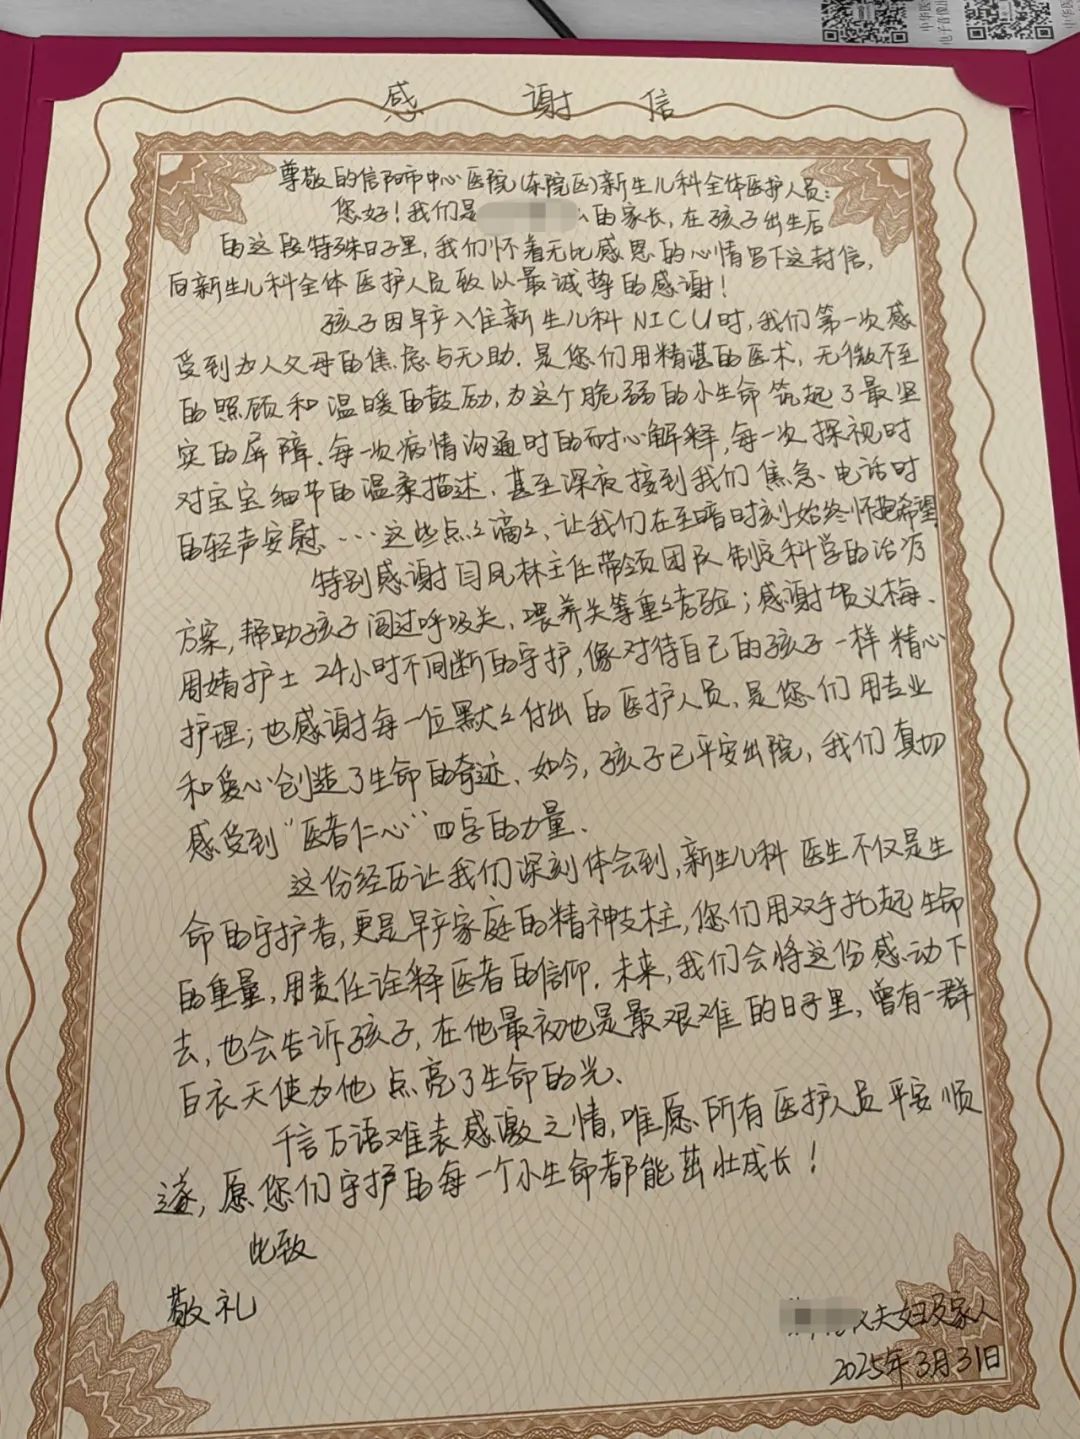 感谢信
尊敬的信阳市中心医院(东院区)新生儿科全体医护人员:
您好!我们是的家长,在孩子出生后
的这段特殊日子里,我们怀着无比感恩的心情写下这封信,
向新生儿科全体医护人员致以最诚挚的感谢!
孩子因早产入住新生儿科NICU时,我们第一次感
受到为人父母的焦虑与无助.是您们用精谌的医术,无微不至
的照顾和温暖的鼓励,为这个脆弱的小生命筑起了最坚
实的屏障.每一次病情沟通时的耐心解释,每一次探视时
对宝宝细节的温柔描述.甚至深夜接到我们焦急电话时
的轻声安慰……这些点々滴々、让我们在至暗时刻始终怀抱希望
特别感谢闫凤林主任带领团队制定科学的治疗
方案,帮助孩子闯过呼吸关、喂养关等重々考验;感谢贺义梅、
周婧护士24小时不间断的守护,像对待自己的孩子一样精心
护理;也感谢每一位默々付出的医护人员,是您们用专业
和爱心创造了生命的奇迹、如今,孩子已平安出院,我们真切
感受到“医者仁心”四字的力量、
这份经历让我们深刻体会到,新生儿科医生不仅是生
命的守护者,更是早产家庭的精神支柱,您们用双手托起生命
的重量,用责任诠释医者的信仰.未来,我们会将这份感动下
去,也会告诉孩子,在他最初也是最艰难的日子里,曾有一群
白衣天使为他点亮了生命的光、
千言万语难表感激之情,唯愿所有医护人员平安顺
遂,愿您们守护的每一个小生命都能茁壮成长!
此致
敬礼
夫妇及家人
2025年3月31日